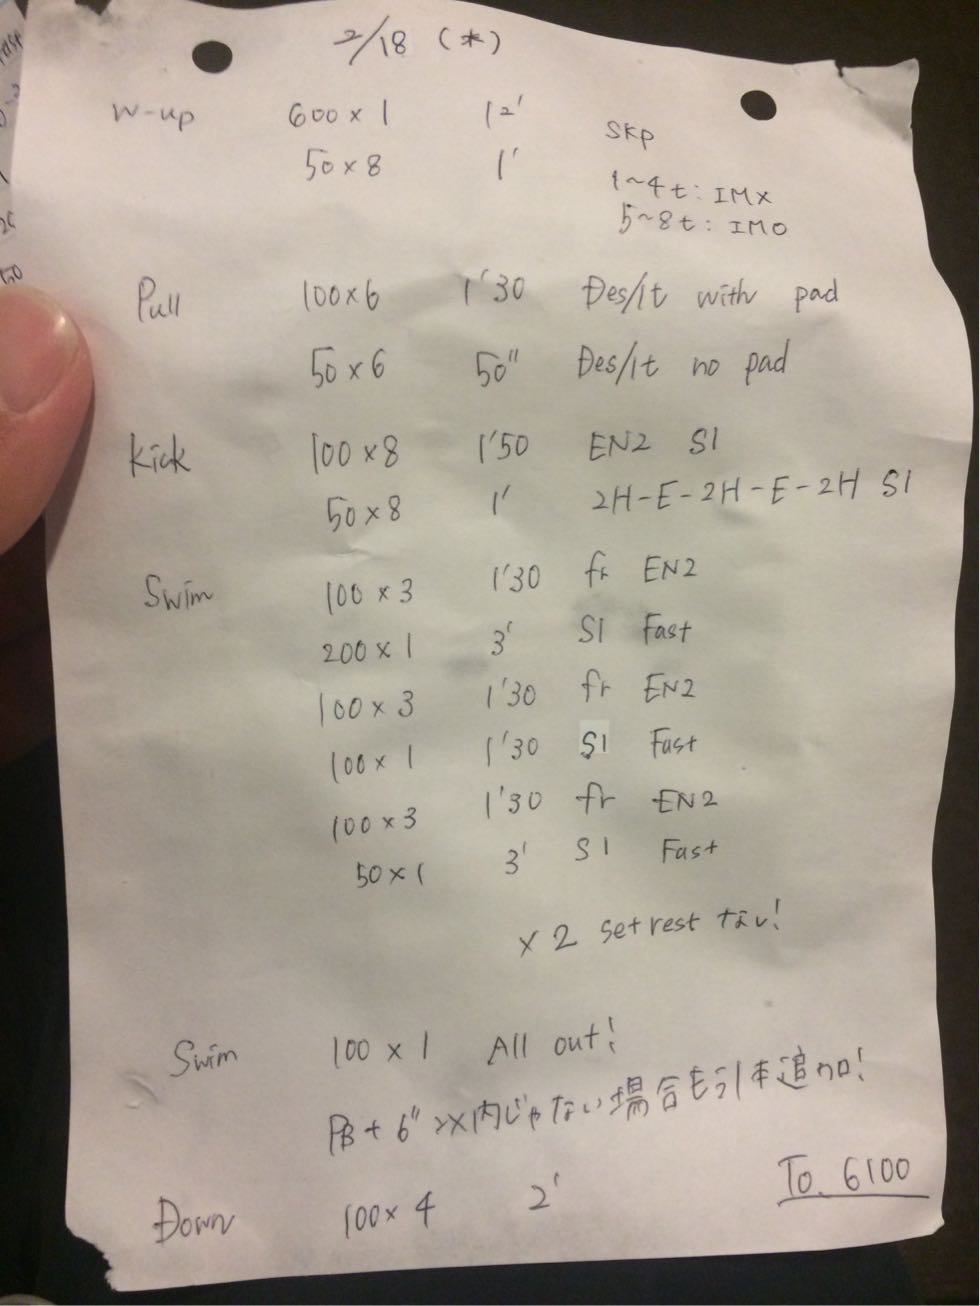 2/18 (木)
W-up 600×1 12' SKp
50×8 1' 1~4t: IMX
5~8t: IMO
Pull 100×6 1'30 Des/1t with pad
50×6 50" Des/1t no pad
Kick 100×8 1'50 EN2 S1
50×8 1' 2H-E-2H-E-2H S1
Swim 100×3 1'30 fr EN2
200×1 3' S1 Fast
100×3 1'30 fr EN2
100×1 1'30 S1 Fast
100×3 1'30 fr EN2
50×1 3' S1 Fast
×2 set rest なし!
Swim 100×1 All out!
PB+6"以内じゃない場合もう1本追加!
Down 100×4 2' To. 6100